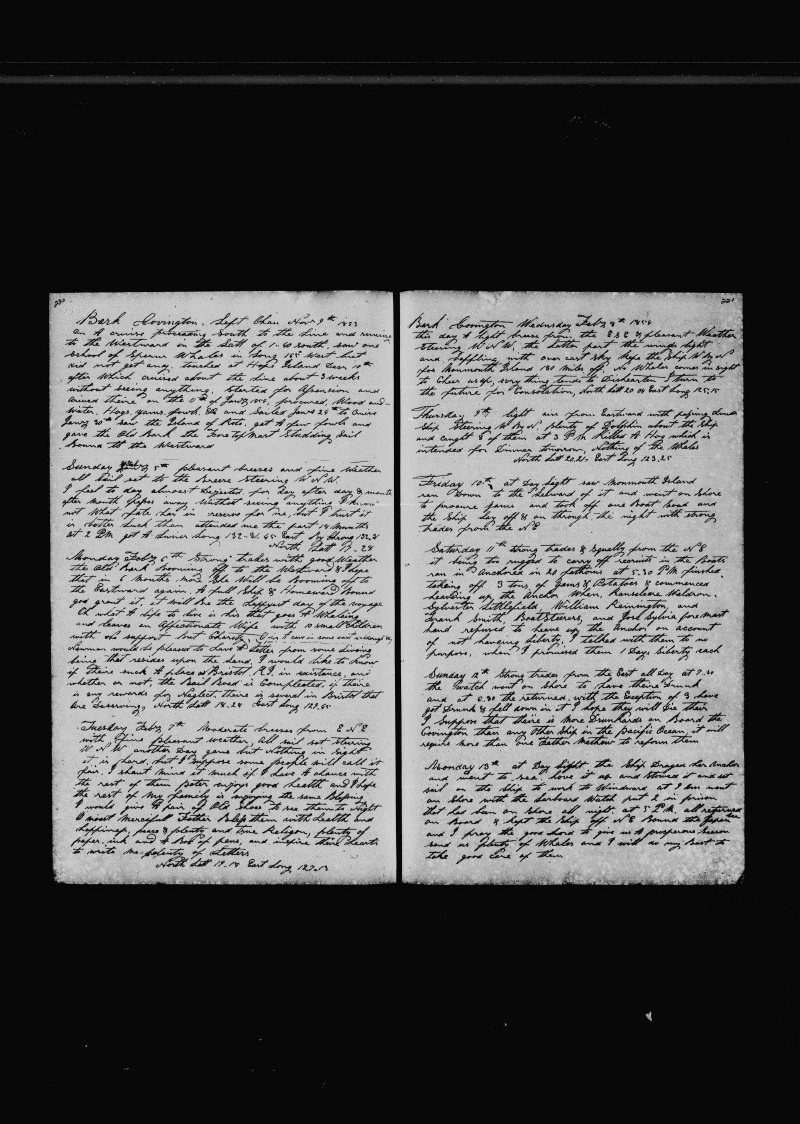 Bark Covington. Left Chau Nov 9th 1853
on A cruise proceeding South to the Line and running
to the Westward in the Latt of 1-40 South, saw one
School of Sperm Whales in Long 165 West but
did not get any. touched at Hope Island Decr 10th
after Which cruised about the Line about 3 weeks
without seeing anything, started for Ascension and
arived there on the 11th of Jany 1854, procured, Wood and
Water, Hogs yams, fowls &c and Sailed Jany 25th to Cruise
Jany 30th saw the Island of Rota. got A few fowls and
gave the Old Bark the Foretopmast Studding Sail
Bound to the Westward
Sunday Feby 5th pleasant breezes and fine Weather
all Sail set to the Breeze Steering W N W.
I feel to day almost Dejected for Day after day & month
after Month passes away Without seeing anything I know
not What fate has in reserve for me, but I trust it
is better luck than attended me the past 14 Months
at 2 PM got A Lunar Long 132-31. 45 East By Chrong 132,31
North Latt 17-28
Monday Feby 6th Strong trades with good Weather
the Old bark Booming off to the Westward & I hope
that in 6 Months more She Will be Booming off to
the Eastward again, A full Ship & Homeward bound
god grant it, it Will be the happiest day of the voyage
Oh what A life to live is his that goes A Whaleing
and leaves an Affectionate Wife with 10 small Children
with no support but Charity.
Newman would be pleased to have A Letter from some liveing
being that resides upon the Land, I would like to know
if their such A place as Bristol R.I. in existance, and
whether or not, the Rail Road is Compleated, if theire
is any rewards for Neglect, theire is several in Bristol that
are Deserving, North Latt 18.28 East Long 129.55
Tuesday Feby 7th Moderate breezes from E N E
with fine Pleasant weather, all sail set Steering
W N W another Day gone but Nothing in Sight
it is hard, but I suppose some people will call it
fair, I shant mind it much if I have A chance with
the rest of them Peter enjoys good health and I hope
the rest of My family is enjoying the same Blessing
I would give A pair of Old Shoes to see them to Night
O most Merciful Father Bless them with Health and
happiness, peace & plenty and true Religon, plenty of
paper, ink and A Box of pens, and inspire their hearts
to write me plenty of Letters
North Latt 19.14 East Long 127.13
Bark Covington Wednesday Feby 8th 1854
this day A light breeze from the E S E & pleasant Weather
Steering W N W, the latter part the winds light
and baffling with over cast Sky kept the Ship W By N
for Monmouth Island 180 Miles off. No Whales comes in sight
to Cheer us up, very thing tends to Dishearten I turn to
the future for Consolation, North Latt 20 04 East Long 125,15
Thursday 9th light airs from Eastward with passing clouds
Ship Steering W By N. plenty of Dolphin about the Ship
and caught 8 of them at 3 P.M. Killed A Hog which is
intended for Dinner tomorrow, Nothing of the Whales
North Latt 20.21. East Long 123.25
Friday 10th, at Day light saw Monmouth Island
ran Down to the Leeward of it and went on Shore
to procure yams and took off one Boat Load and
the Ship lay off & on through the night with strong
trades from the N E
Saturday 11th Strong trades & Squally from the N E
it being too rugged to carry off recruits in the Boats
ran in & Anchored in 20 fathoms at 5.30 P.M. finished
takeing off 3 tons of Yams & Potatoes & commenced
heaveing up the Anchor When, Ranselaer Weldron.
Sylvester Littlefield, William Penington, and
Frank Smith, Boatsteerers, and Jose Sylvia foremast
hand refused to heave up the Anchor on account
of not haveing Liberty, I talked with them to no
purpose, when I promised them 1 Days Liberty each
Sunday 12th Strong trades from the East all day at 7.30
the Watch went on Shore to have theire Drunk
and at 5.30 the returned, with the Exception of 3 have
got Drunk & fell down in it I hope they will die their
I Suppose that theire is More Drunkards on Board the
Covington than any Other Ship in the Pacific Ocean, it will
require more than one Father Mathew to reform them
Monday 13th at Day Light the Ship Draged her Anchor
and went to sea, hove it up and stowed it and set
sail on the Ship to work to Windward at 8 AM went
on Shore with the Larboard Watch put 2 in prison
that has ben on Shore all night, at 5 P.M. all returned
on Board & kept the Ship off N E Bound the Japan Sea
and I pray the good Lord to give us A prosperous Season
send us plenty of Whales and I will do my Best to
take good Care of them